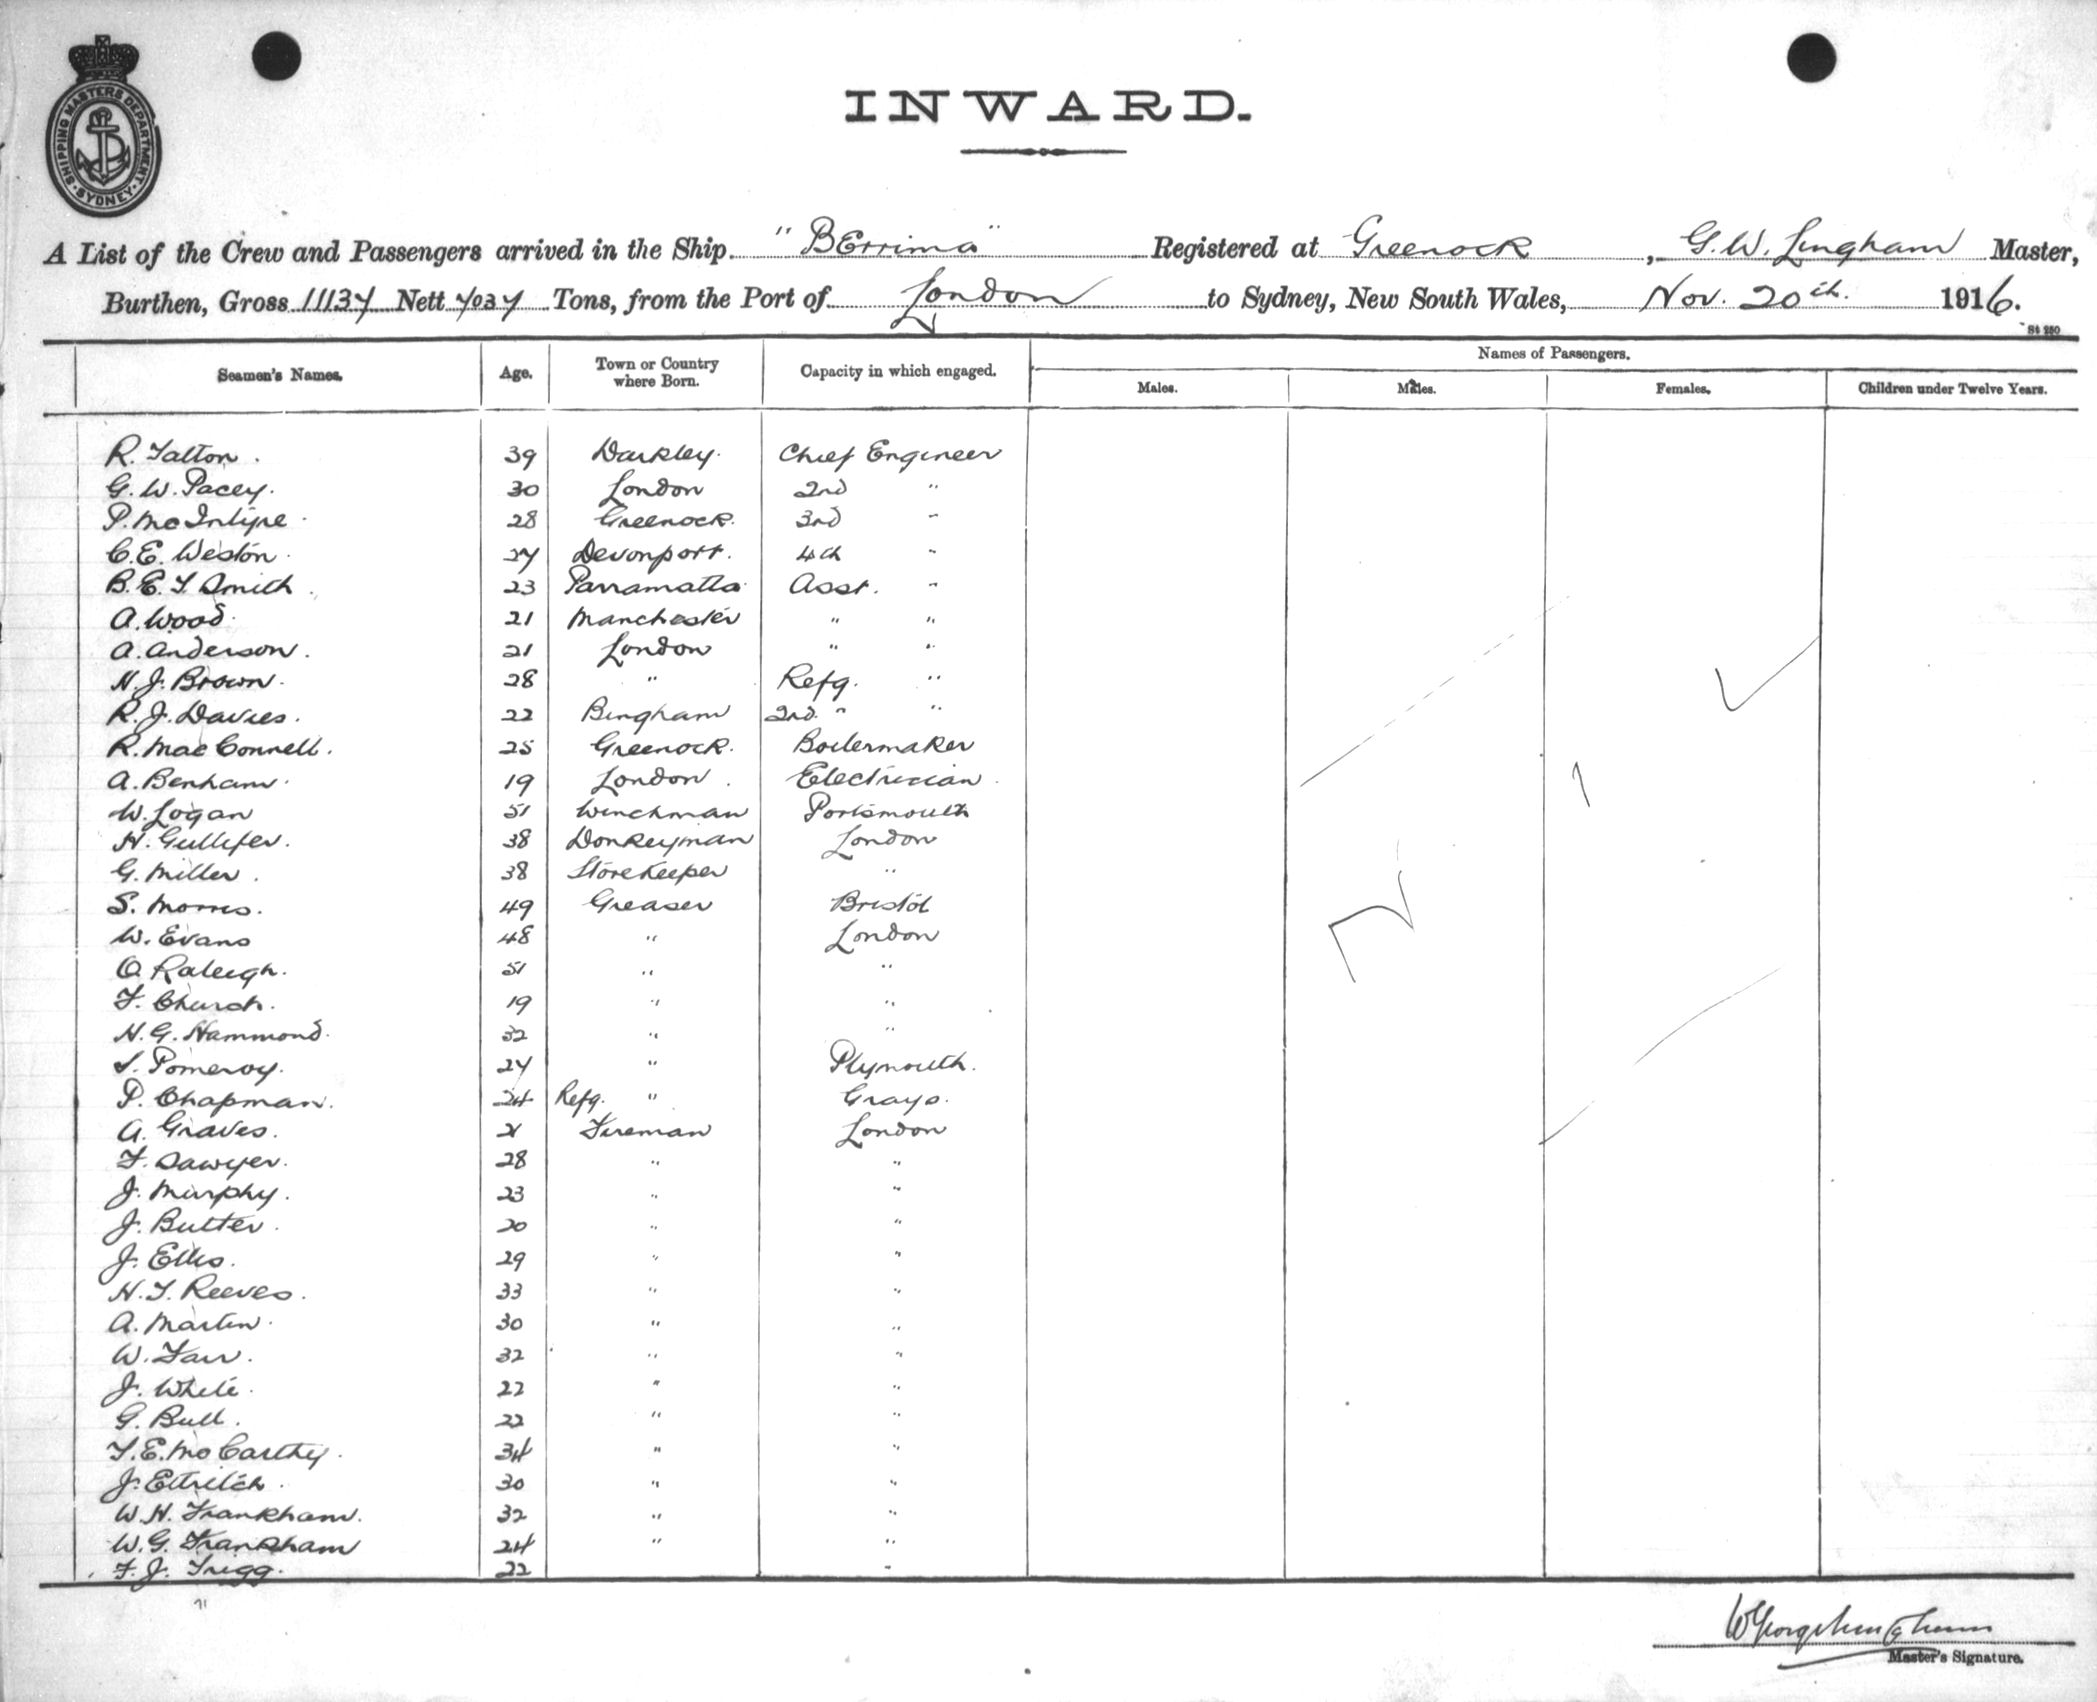 SHIPPING MASTERS DEPARTMENT · SYDNEY ·
INWARD.
A List of the Crew and Passengers arrived in the Ship "Berrima" Registered at Greenock, G. W. Lingham Master,
Burthen, Gross 11137 Nett 7037 Tons, from the Port of London to Sydney, New South Wales, Nov. 20th. 1916.
St 250
Seamen's Names. Age. Town or Country where Born. Capacity in which engaged. Names of Passengers.
Males. Males. Females. Children under Twelve Years.
R. Talton. 39 Darkley. Chief Engineer
G. W. Pacey. 30 London 2nd "
P. McIntyre. 28 Greenock. 3rd "
C. E. Weston. 27 Devonport. 4th "
B. E. T. Smith. 23 Parramatta. Asst. "
A. Wood. 21 Manchester " "
A. Anderson. 21 London " "
H. J. Brown. 28 " Refg. "
R. J. Davies. 22 Bingham 2nd. " "
R. MacConnell. 25 Greenock. Boilermaker
A. Benham. 19 London. Electrician.
W. Logan 51 Winchman Portsmouth
H. Gullifer. 38 Donkeyman London
G. Miller. 38 Storekeeper "
S. Morris. 49 Greaser Bristol
W. Evans 48 " London
O. Raleigh. 51 " "
F. Church. 19 " "
H. G. Hammond. 32 " "
S. Pomeroy. 27 " Plymouth.
P. Chapman. 24 Refg. " Grays.
A. Graves. 21 Fireman London
F. Sawyer. 28 " "
J. Murphy. 23 " "
J. Butter. 20 " "
J. Ellis. 29 " "
H. T. Reeves. 33 " "
A. Martin. 30 " "
W. Fair. 32 " "
J. White. 22 " "
G. Bull. 22 " "
T. E. McCarthy. 34 " "
J. Ettritch. 30 " "
W. H. Frankham. 32 " "
W. G. Frankham 24 " "
F. J. Trigg. 22 "
Master's Signature.